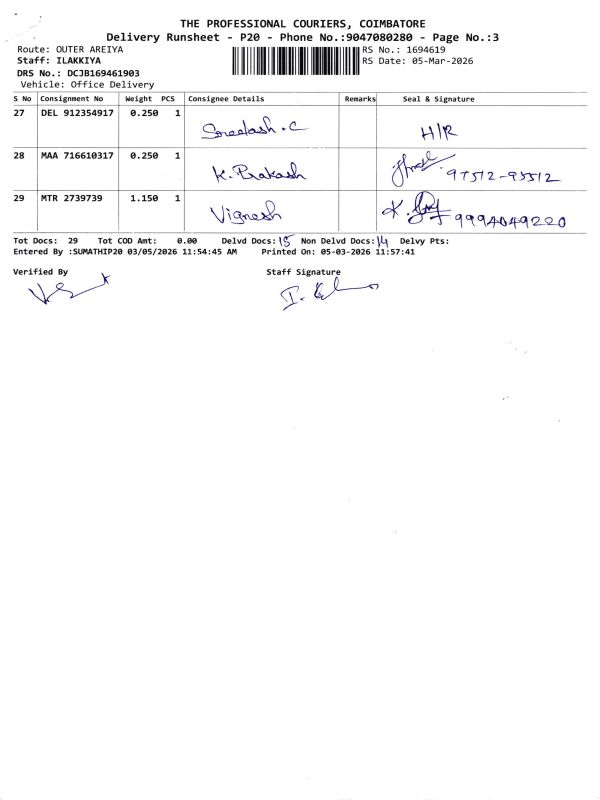 THE PROFESSIONAL COURIERS, COIMBATORE
Delivery Runsheet - P20 - Phone No.:9047080280 - Page No.:3
Route: OUTER AREIYA
RS No.: 1694619
Staff: ILAKKIYA
RS Date: 05-Mar-2026
DRS No.: DCJB169461903
Vehicle: Office Delivery
S No Consignment No Weight PCS Consignee Details Remarks Seal & Signature
27 DEL 912354917 0.250 1 Sreelash .C H/R
28 MAA 716610317 0.250 1 K. Prakash 97512-95512
29 MTR 2739739 1.150 1 Vignesh 9994049220
Tot Docs: 29 Tot COD Amt: 0.00 Delvd Docs: 15 Non Delvd Docs: 14 Delvy Pts:
Entered By :SUMATHIP20 03/05/2026 11:54:45 AM Printed On: 05-03-2026 11:57:41
Verified By Staff Signature